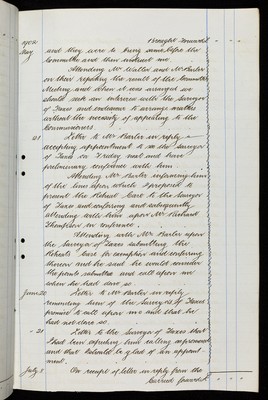 Brought Forward
1904
May
and they were to bring same before the
Committee and then instruct me.
Attending Mr Waller and Mr Barler
on their reporting the result of the Committee
Meeting and when it was arranged we
should seek an interview with the Surveyor
of Taxes and endeavour to arrange matters
without the necessity of appealing to the
Commissioners
21 Letter to Mr Barler in reply
accepting appointment to see the Surveyor
of Taxes on Friday next and have
preliminary conference with him
Attending Mr Barler informing him
of the lines upon which I proposed to
present the Rebate Case to the Surveyor
of Taxes and conferring and subsequently
attending with him upon Mr Richard
Thompson in conference.
Attending with Mr Barler upon
the Surveyor of Taxes submitting the
Rebate Case for exemption and conferring
thereon and he said he would consider
the points submitted and call upon me
when he had done so
June 20 Letter to Mr Barler in reply
reminding him of the Surveyor of Taxes
promise to call upon me and that he
had not done so.
" 21 Letter to the Surveyor of Taxes that
I had been expecting him calling as promised
and that I should be glad of an appoint-
ment.
July 1 On receipt of letter in reply from the
Carried forward